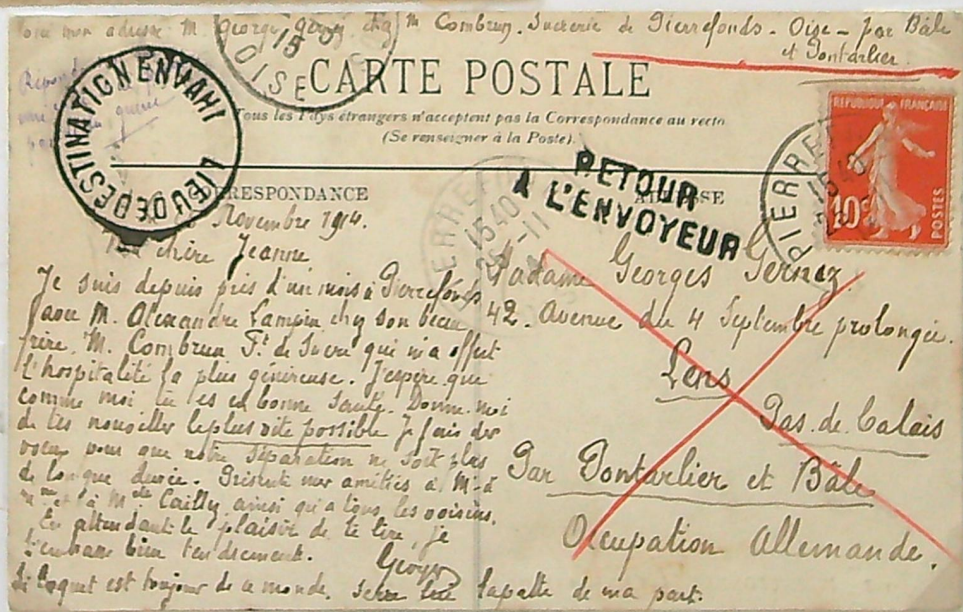 Voici mon adresse M. Georges Gernez chez M Combrun. Sucrerie de Pierrefonds. Oise - par Bâle
et Pontarlier.
15
OISE
CARTE POSTALE
Tous les Pays étrangers n'acceptent pas la Correspondance au recto
(Se renseigner à la Poste).
LIEU DE DESTINATION ENVAHI
RETOUR
A L'ENVOYEUR
REPUBLIQUE FRANÇAISE
10
POSTES
PIERREF
15 40
PIERREF
15 40
-11
RESPONDANCE
AD SSE
Novembre 1914.
Ma chère Jeanne
Je suis depuis près d'un mois à Pierrefonds
avec M. Alexandre Lampin chez son beau
frère, M. Combrun Ft. de Sucre qui m'a offert
l'hospitalité la plus généreuse. J'espère que
comme moi tu es en bonne santé. Donne-moi
de tes nouvelles le plus vite possible. Je fais des
voeux pour que notre séparation ne soit plus
de longue durée. Présente mes amitiés à Mr. &
Mme et à Mlle Cailly ainsi qu'à tous les voisins.
En attendant le plaisir de te lire, je
t'embrasse bien tendrement.
Georges
Si Coquet est toujours de ce monde, serre lui la patte de ma part.
Madame Georges Gernez
42. Avenue du 4 Septembre prolongée.
Lens
Pas-de-Calais
Par Pontarlier et Bâle
Occupation Allemande.